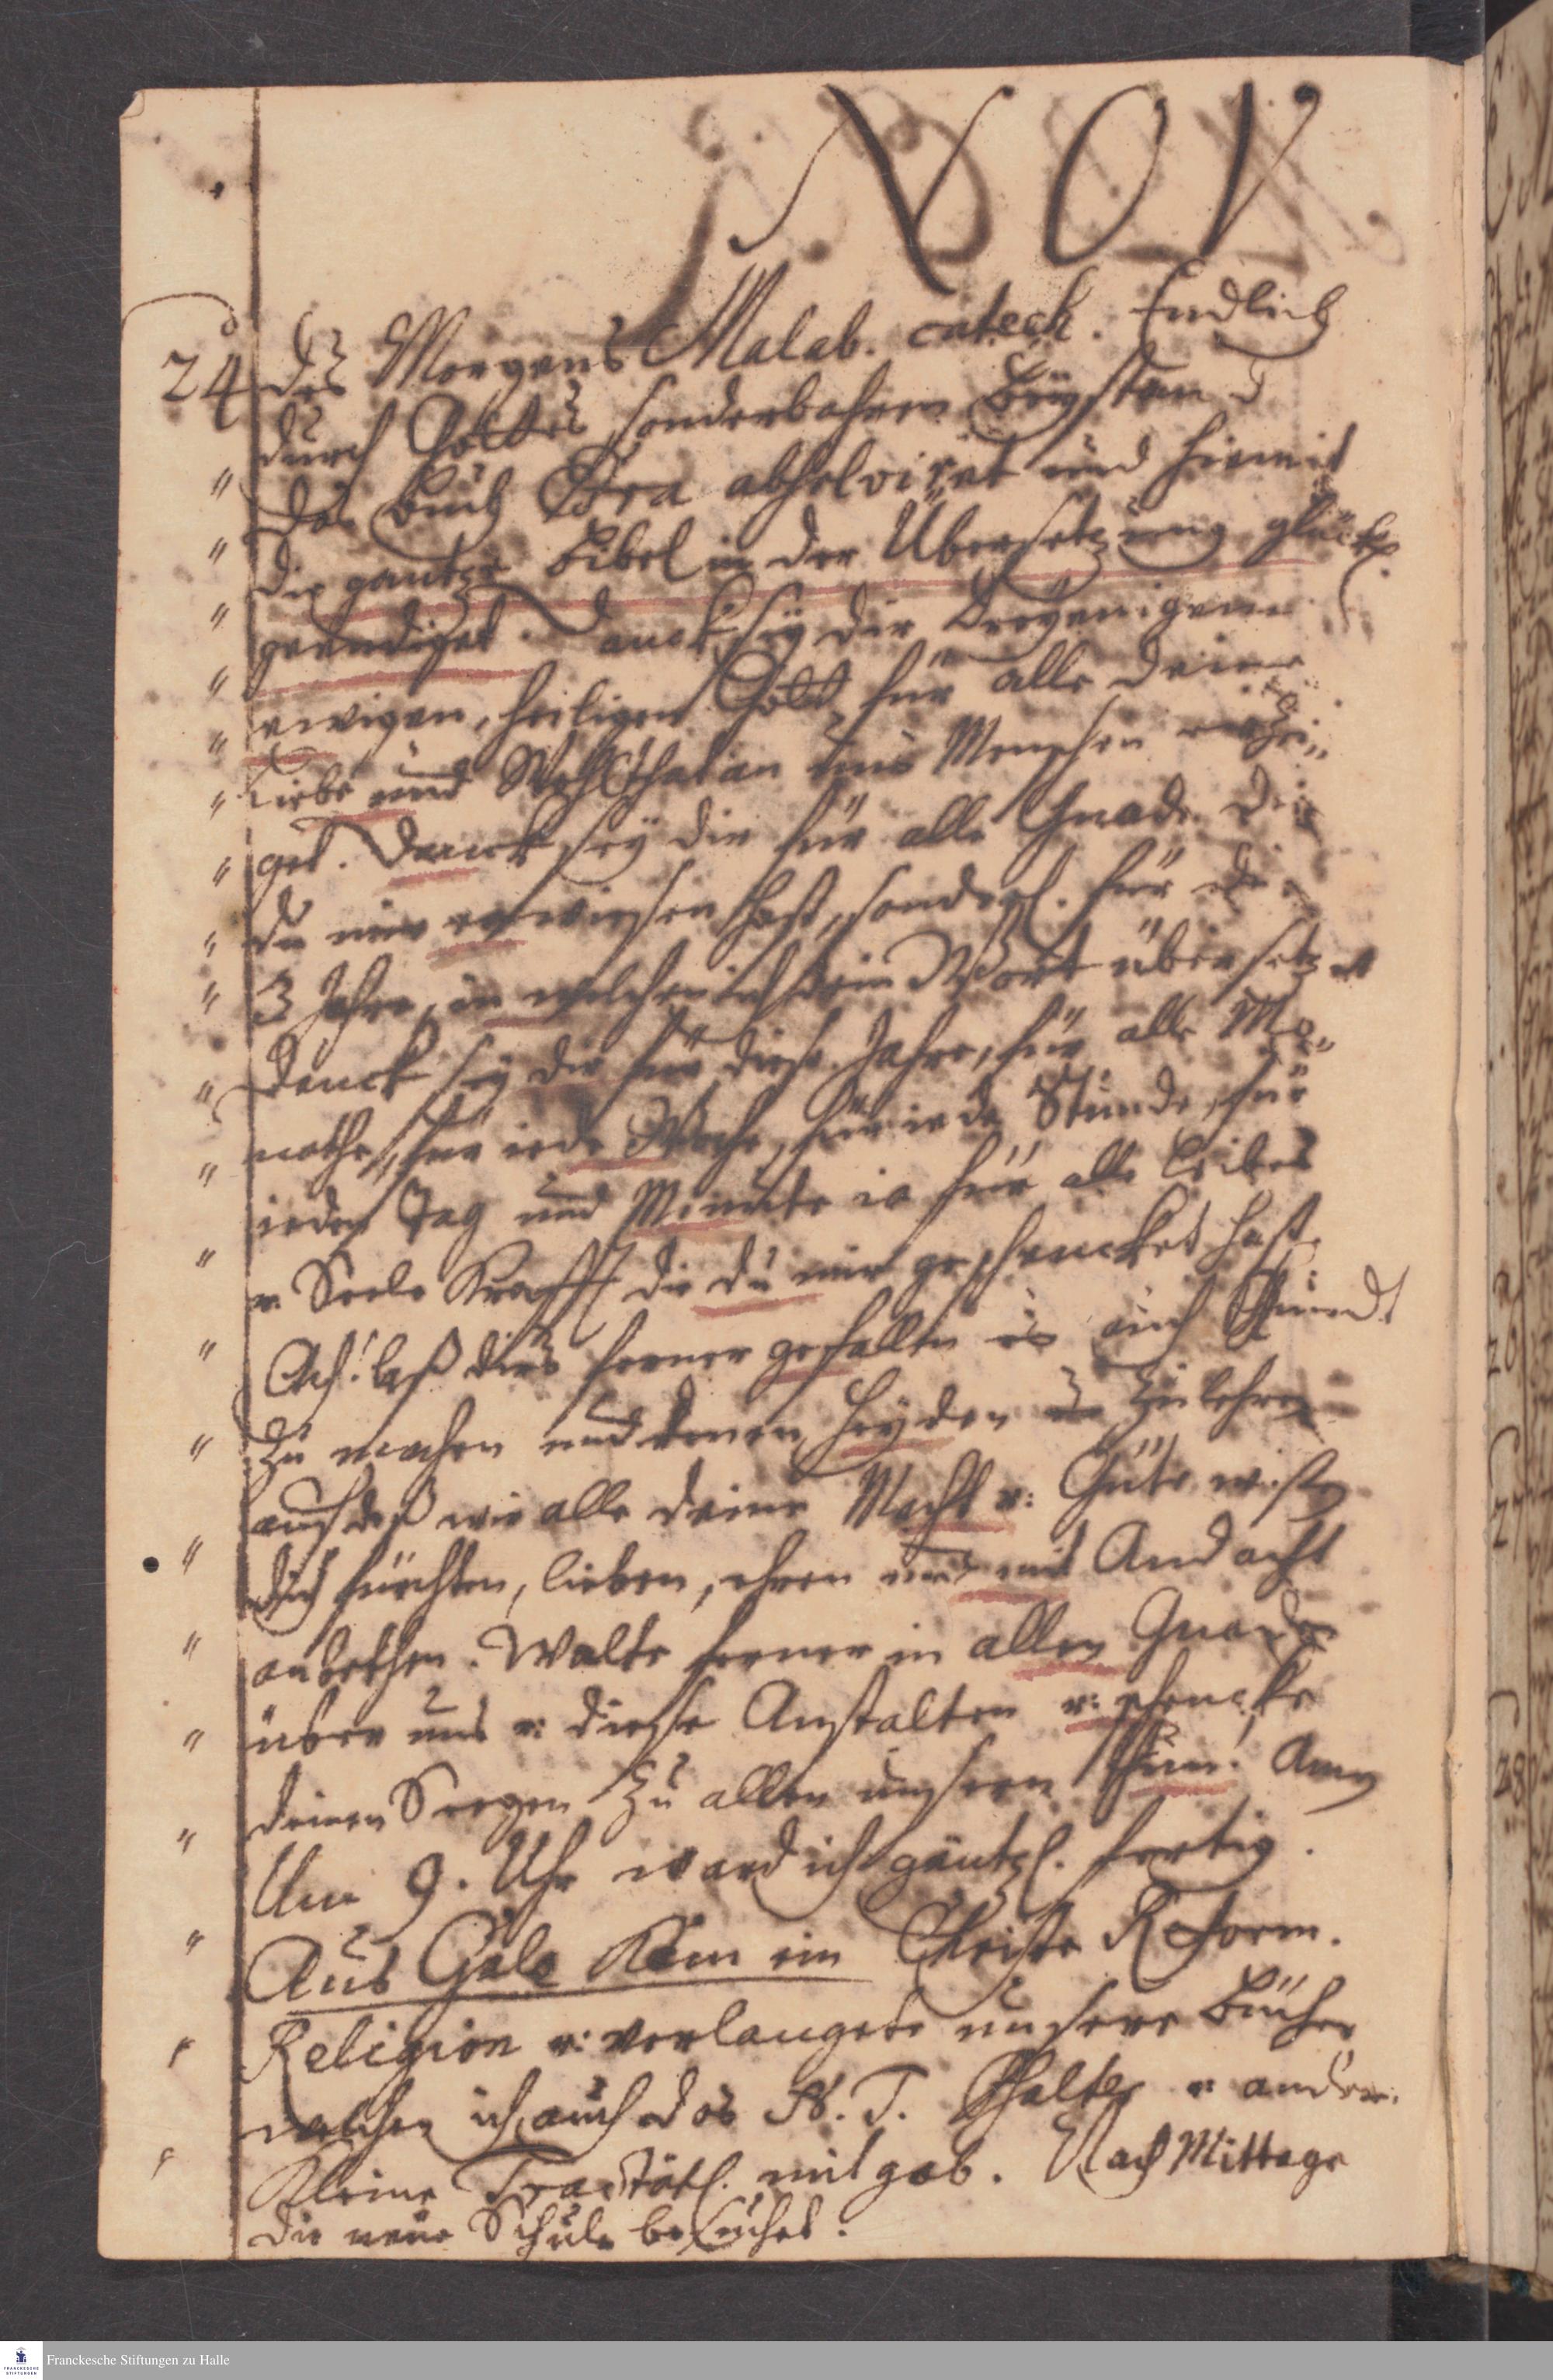 NOV
24 des Morgens Malab. catech. Endlich
durch Gottes sonderbahren Beystand
das Buch Esra absolviret und hiemit
die gantze Bibel in der Übersetzung glückl.
geendiget. Danck sey dir Dreyeinigem
ewigen, heiligen Gott für alle deine
Liebe und Wohlthat an uns Menschen erzei„
get. Danck sey dir für alle Gnade die
du mir erwiesen hast, sonderl. für die
3 Jahre, in welchen ich dein Wort übersetzet
Danck sey dir für diese Jahre, für alle Mo„
nathe, für iede Woche, für iede Stunde, für
ieden Tag und Minute ia für alle Leibes
u. Seele Krafft die du mir geschencket hast.
Ach! laß dirs ferner gefallen es auch Kund
zu machen und denen Heyden zu lehren
auf daß wir alle deine Macht u: Güte wißen
dich fürchten, lieben, ehren und mit Andacht
anbethen. Walte ferner in allen Gnaden
über uns u: diese Anstalten u: schencke
deinen Seegen zu allen unsern thun! Amen
Um 9. Uhr ward ich gäntzl. fertig.
Aus Gale kam ein Christe Reform.
Religion u: verlangete unsere Bücher
welchen ich auch das N. T. Psalter u: andere
kleine Tractätl. mitgab. Nach Mittage
die neue Schule besuchet.
Franckesche Stiftungen zu Halle